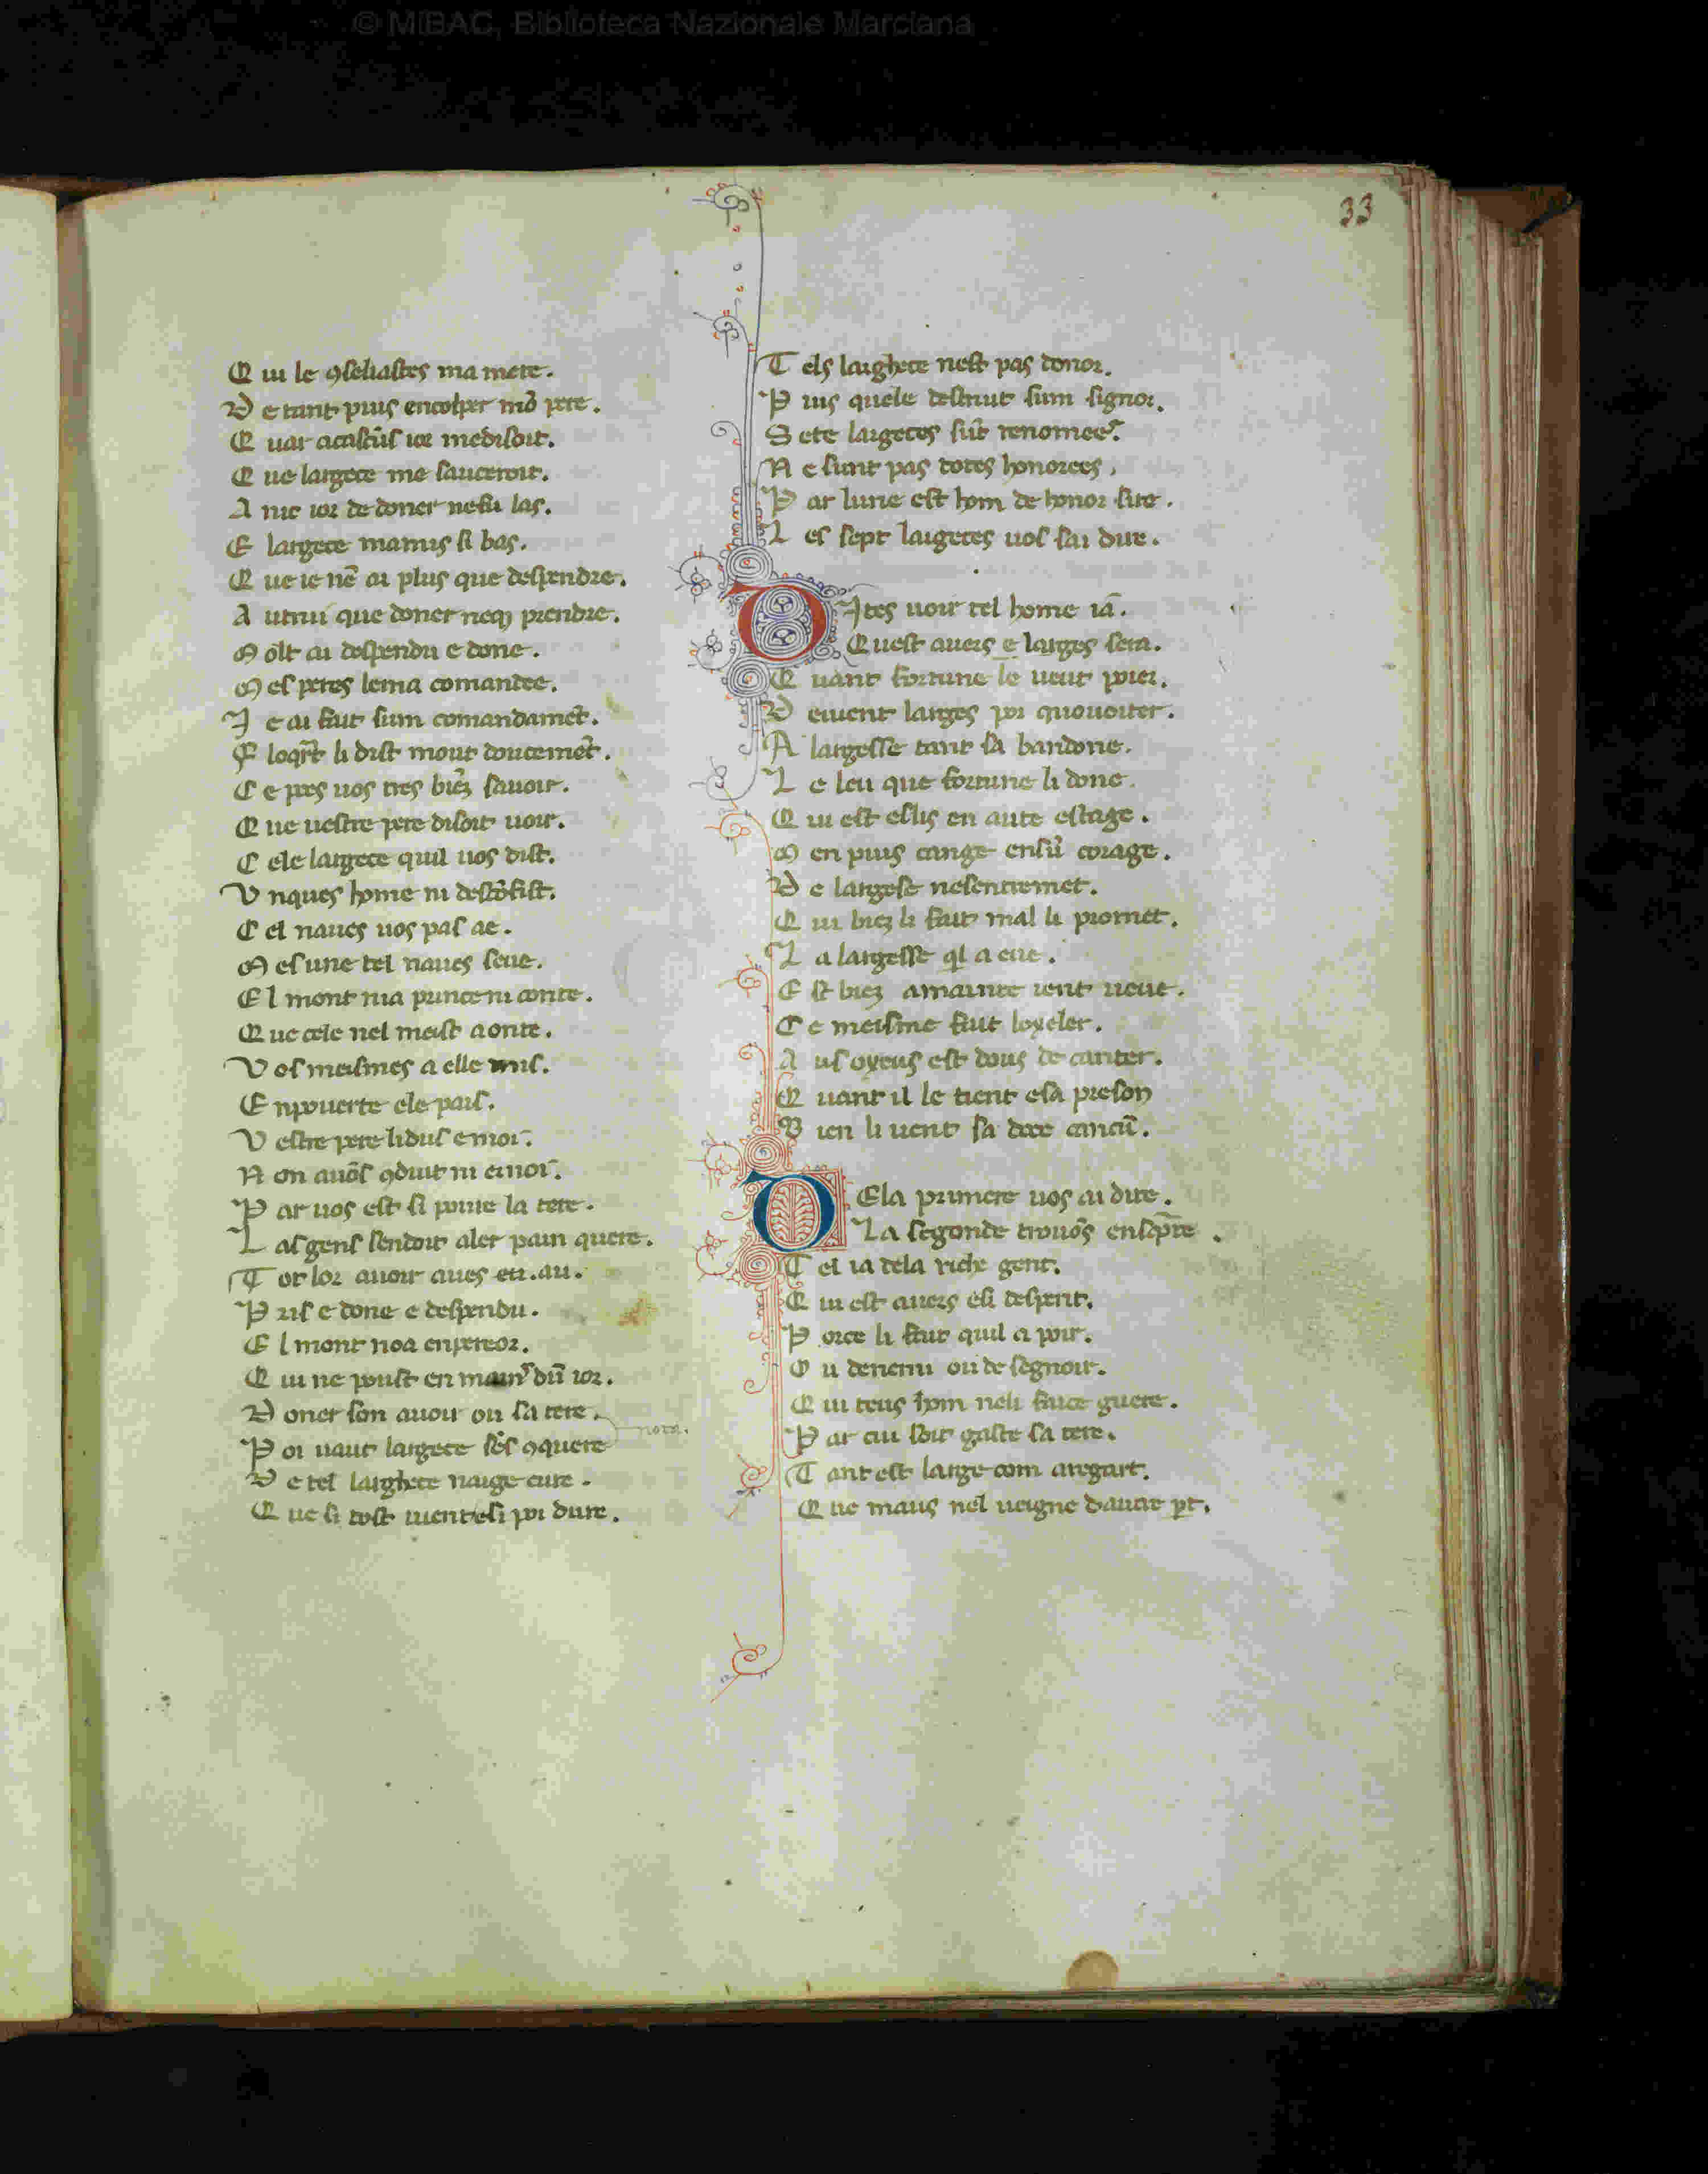 © MiBAC, Biblioteca Nazionale Marciana
33
Q ui le ꝯseliastes ma mere.
D e tant puis encolper mō pere.
Q uar acastūs ior me disoit.
Q ue largece me sauceroit.
A nic ior de doner ne fu las.
E largece ma mis si bas.
Q ue ie nē ai plus que despendre.
A utrui que doner neqꝫ prendre.
M olt ai despendu e done.
M es peres lema comandee.
J e ai fait sum comandamēt.
F loqr̄t li dist mout doucemēt.
C e pees uos tres biēz sauoir.
Q ue uestre pere disoit uoir.
C ele largece quil uos dist.
V nques home ni descōfist.
C el naues uos pas ae.
M es une tel naues seue.
E l mont nia prince ni conte.
Q ue cele nel meist a onte.
V os meismes a elle mis.
E npouerte ele pais.
V estre pere li dus emoi.
N on auōs ꝯduit ni emoi.
P ar uos est si poure la tere.
L as gens sendoit aler pain quere.
T ot lor auoir aues eu. au.
P ris e done e despendu.
E l mont noa enpereor.
Q ui ne poust en main dū ior.
D oner son auoir ou sa tere.
P oi uaut largece sēs ꝯquere
nota.
D e tel larghece naige cure.
Q ue si tost uient e si poi dure.
T els larghece nest pas donor.
P uis quele destruit sum signor.
S ete largeces sūt renomees.
N e sunt pas totes honorees.
P ar lune est hom de honor sire.
L es sept largeces uos sai dire.
D Ites uoir tel home ia.
Quest auers e larges sera.
Q uant fortune le ueut poier.
D euient larges por quouoiter.
A largesse tant sa bandone.
L e leu que fortune li done.
Q ui est eslis en aute estage.
M en puis cange ensū corage.
D e largese nesentremet.
Q ui biez li fait mal li promet.
L a largesse ql a eue.
E st biez amainte ient ueue.
C e meisme fait loyeler.
A us oyeus est dous de canter.
Q uant il le tient esa preson
B ien li uent sa doce cancū.
D Ela primere uos ai dite.
La segonde trouōs enscp̄te.
T el ia dela riche gent.
Q ui est auers esi despent.
P orce li fait quil a poir.
O u denemi ou de segnoir.
Q ui teus hom neli faice guere.
P ar cui soit gaste sa tere.
T ant est large com aregart.
Q ue maus nel ueigne dautre pt.